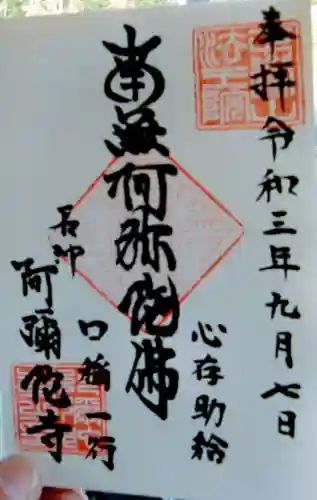 奉拝 令和三年九月七日
心存助給
南無阿弥陀佛
口称一行
阿彌陀寺